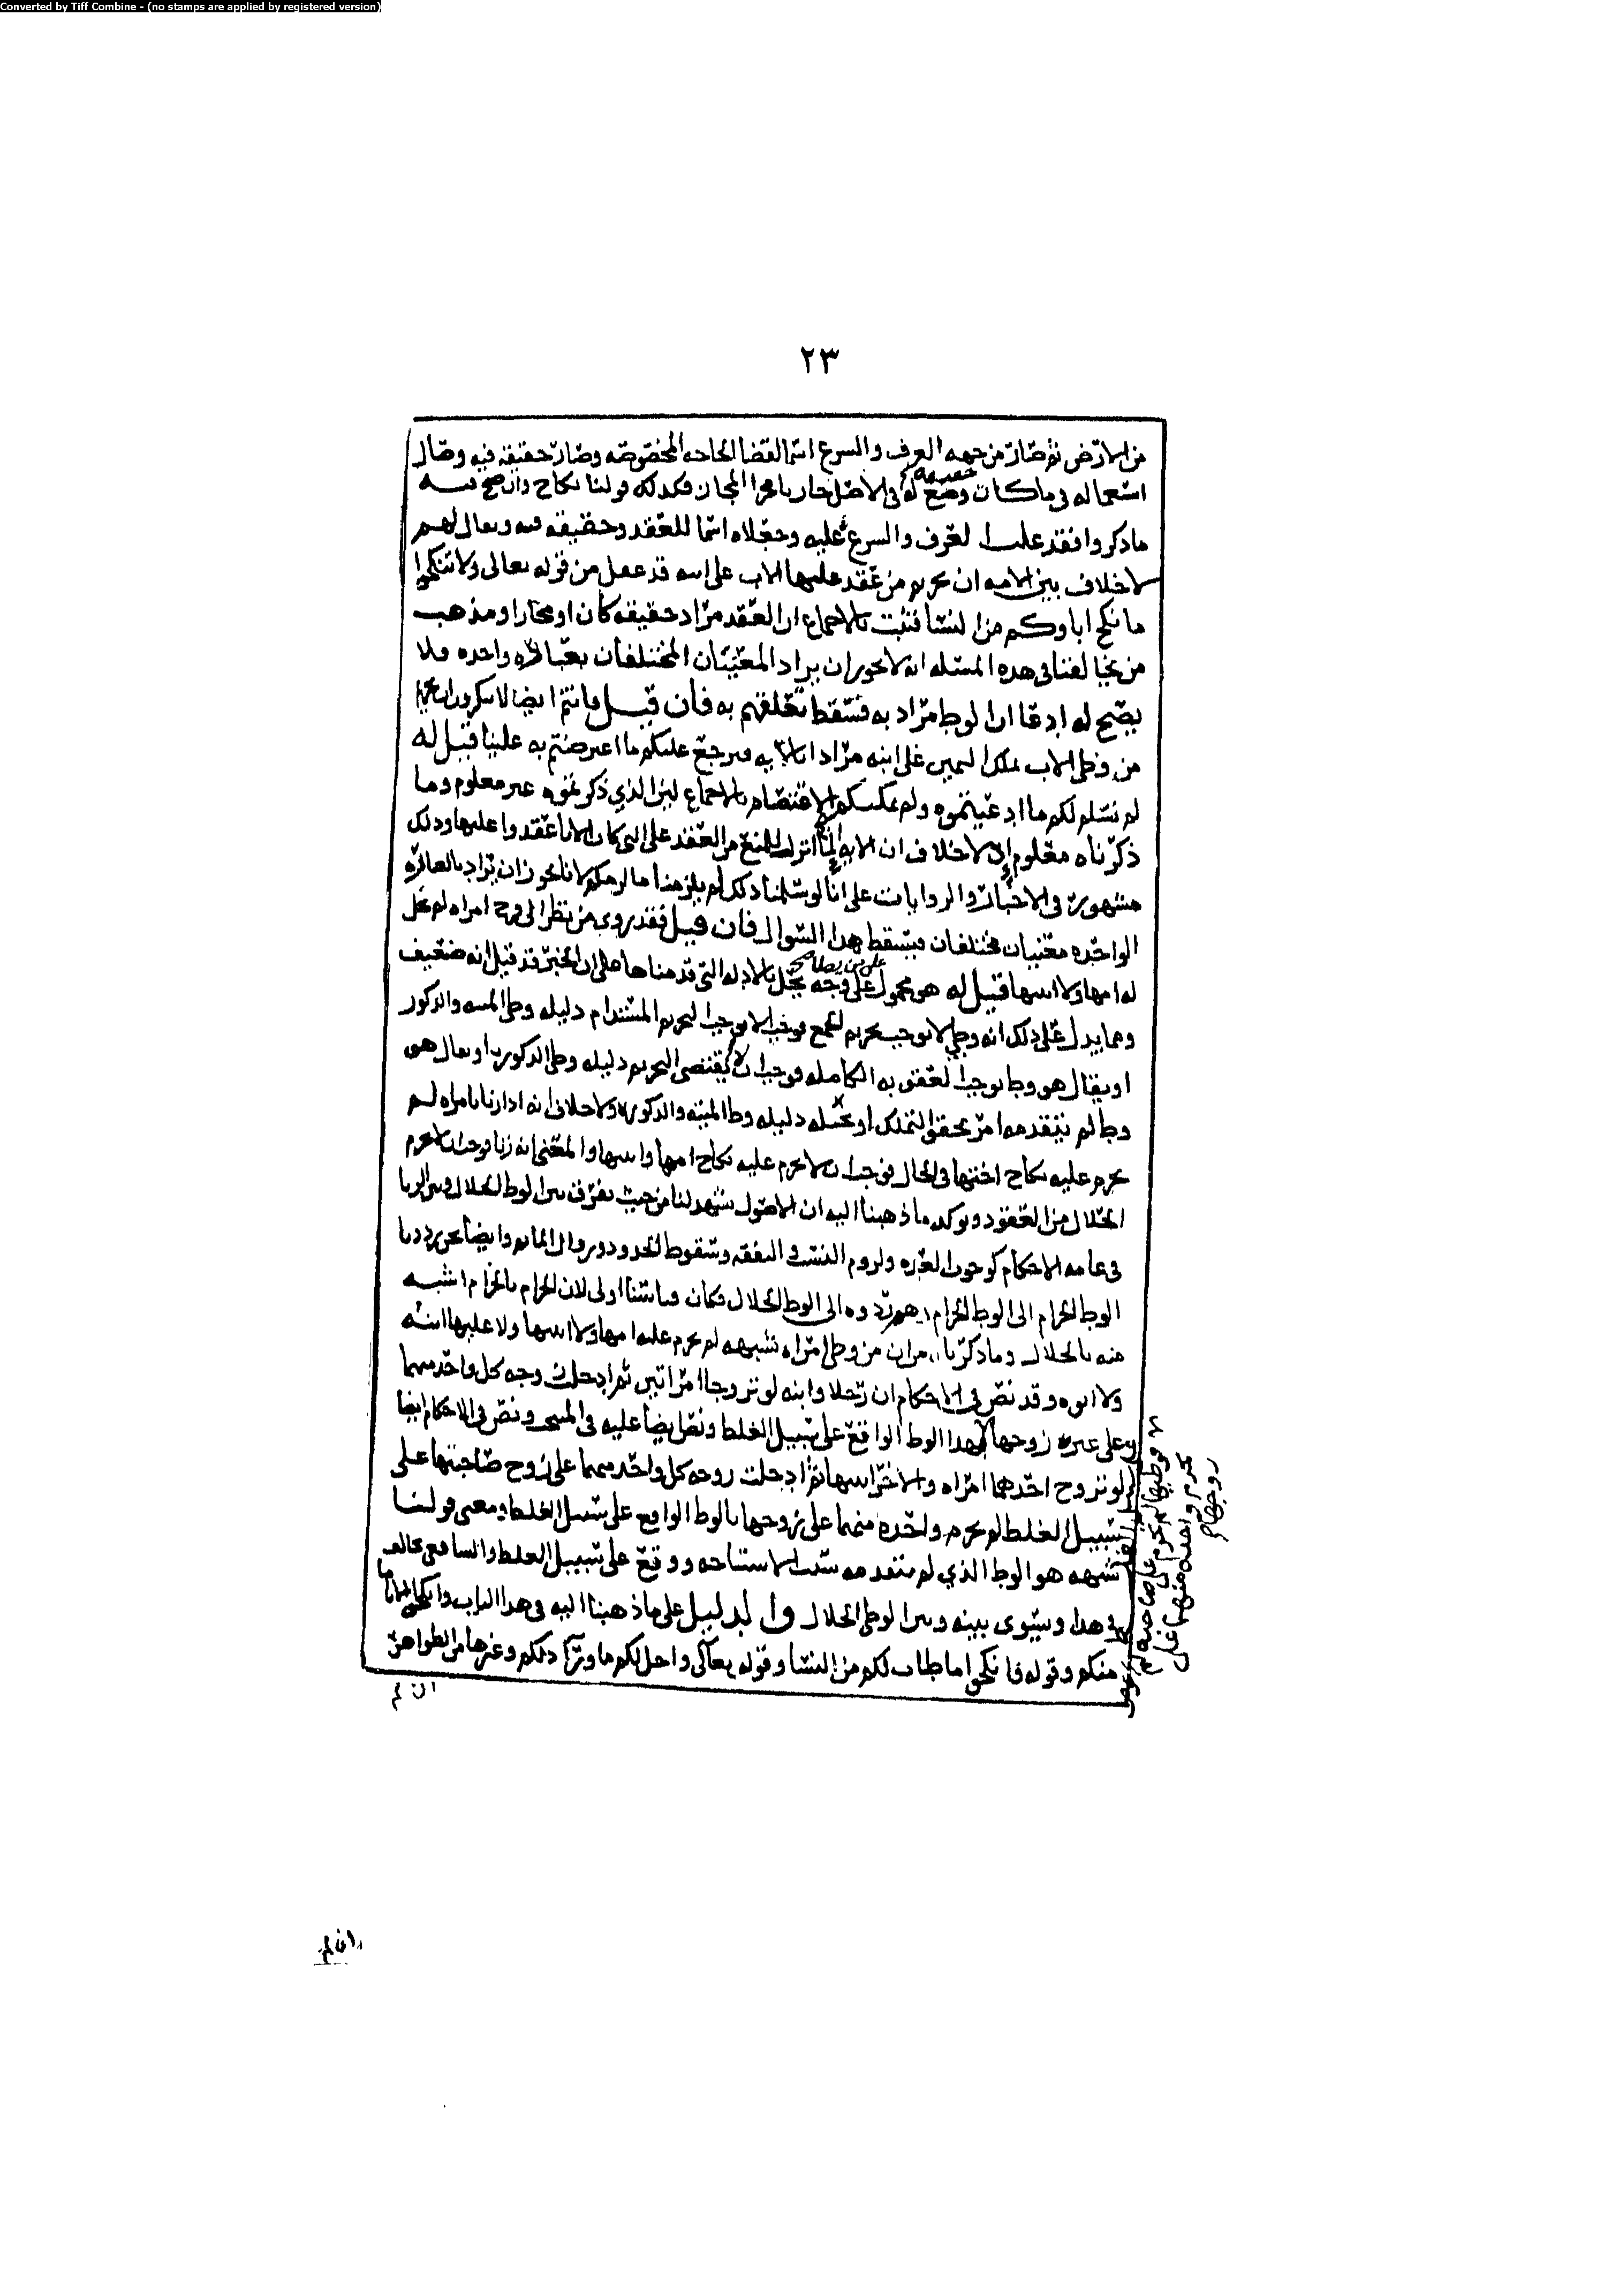 Converted by Tiff Combine - (no stamps are applied by registered version)
٢٣
من الارض ثم صار من جهه العرف والسرع اسما لقضا الحاجه المخصوصه وصار حقيقه فيه وصار
استعماله فى ما كان وضع له فى الاصل جاريا مجرا المجاز فكذلك قولنا نكاح وان صح فيه
حقيقه
ما ذكروا فقد غلب العرف والسرع عليه وجعلاه اسما للعقد وحقيقه فيه ويقال لهم
لا خلاف بين الامه ان تحريم من عقد عليها الاب على ابنه قد عقل من قوله تعالى ولا تنكحوا
ما نكح اباوكم من النسا فثبت بالاجماع ان العقد مراد حقيقه كان او مجازا ومذهب
من يخالفنا فى هذه المسئله انه لا يجوز ان يراد المعنيان المختلفان بعباره واحده فلا
يصح له ادعا ان الوط مراد به فسقط تعلقهم به فان قيل وانتم ايضا لا تنكرون ان تحريم
من وطى الاب بملك اليمين على ابنه مراد بالايه فيرجع عليكم ما اعترضتم به علينا قيل له
لم نسلم لكم ما ادعيتموه ولم يمكنكم الاعتصام بالاجماع لان الذي ذكرتموه غير معلوم وما
ذكرناه معلوم اذ لا خلاف ان الايه انما انزلت للمنع من العقد على التى كان الابا عقدوا عليها وذلك
مشهور فى الاخبار والروايات على انا لو سلمنا ذلك لم يلزمنا ما لزمكم لانا نجوز ان يراد بالعباره
الواحده معنيان مختلفان فيسقط هذا السوال فان قيل فقد روى من نظر الى فرج امراه لم تحل
له امها ولا ابنتها قيل له هو محمول على وجه يحل بالادله التى قدمناها على ان الخبر قد قيل انه ضعيف
ومما يدل على ذلك انه وطى لا يوجب تحريم الجمع فوجب الا يوجب التحريم المستدام دليله وطى الميته والذكور
او يقال هو وطا يوجب العقوبه الكامله فوجب ان لا يقتضى التحريم دليله وطى الذكور او يقال هو
وطا لم يتقدمه امر يحقق التملك او دليله وطا الميته والذكوره ولا خلاف انه اذا زنا بامراه لم
يحرم عليه نكاح اختها فى الحال فوجب ان لا يحرم عليه نكاح امها وابنتها والمعنى انه زنا فوجب ان لا يحرم
الحلال من العقود ويوكد ما ذهبنا اليه ان الاصول تشهد لنا من حيث تفرق بين الوط الحلال وبين الزنا
فى عامه الاحكام كوجوب العده ولزوم النسب والنفقه وسقوط الحدود وايضا نحن رددنا
الوط الحرام الى الوط الحرام وهم ردوه الى الوط الحلال فكان قياسنا اولى لان الحرام بالحرام اشبه
منه بالحلال وما ذكرنا من ان من وطى امراه بشبهه لم يحرم عليه امها ولا ابنتها ولا عليها ابنه
ولا ابوه وقد نص فى الاحكام ان رجلا وابنه لو تزوجا امراتين ثم ادخلت زوجه كل واحد منهما
على غير زوجها بهذا الوط الواقع على سبيل الغلط ونص ايضا عليه فى المنتخب ونص فى الاحكام ايضا
لو تزوج احدهما امراه والاخر ابنتها ثم ادخلت زوجه كل واحد منهما على زوج صاحبتها على
سبيل الغلط لم يحرم واحده منهما على زوجها بالوط الواقع على سبيل الغلط ومعنى قولنا
شبهه هو الوط الذي لم يتقدمه سبب الاستباحه ووقع على سبيل الغلط والشافعى يخالف
فى هذا ويسوى بينه وبين الوطى الحلال والدليل على ما ذهبنا اليه فى هذا الباب وانكحوا الايامى
منكم وقوله فانكحوا ما طاب لكم من النسا وقوله تعالى واحل لكم ما ورآ ذلكم وغيرها من الظواهر